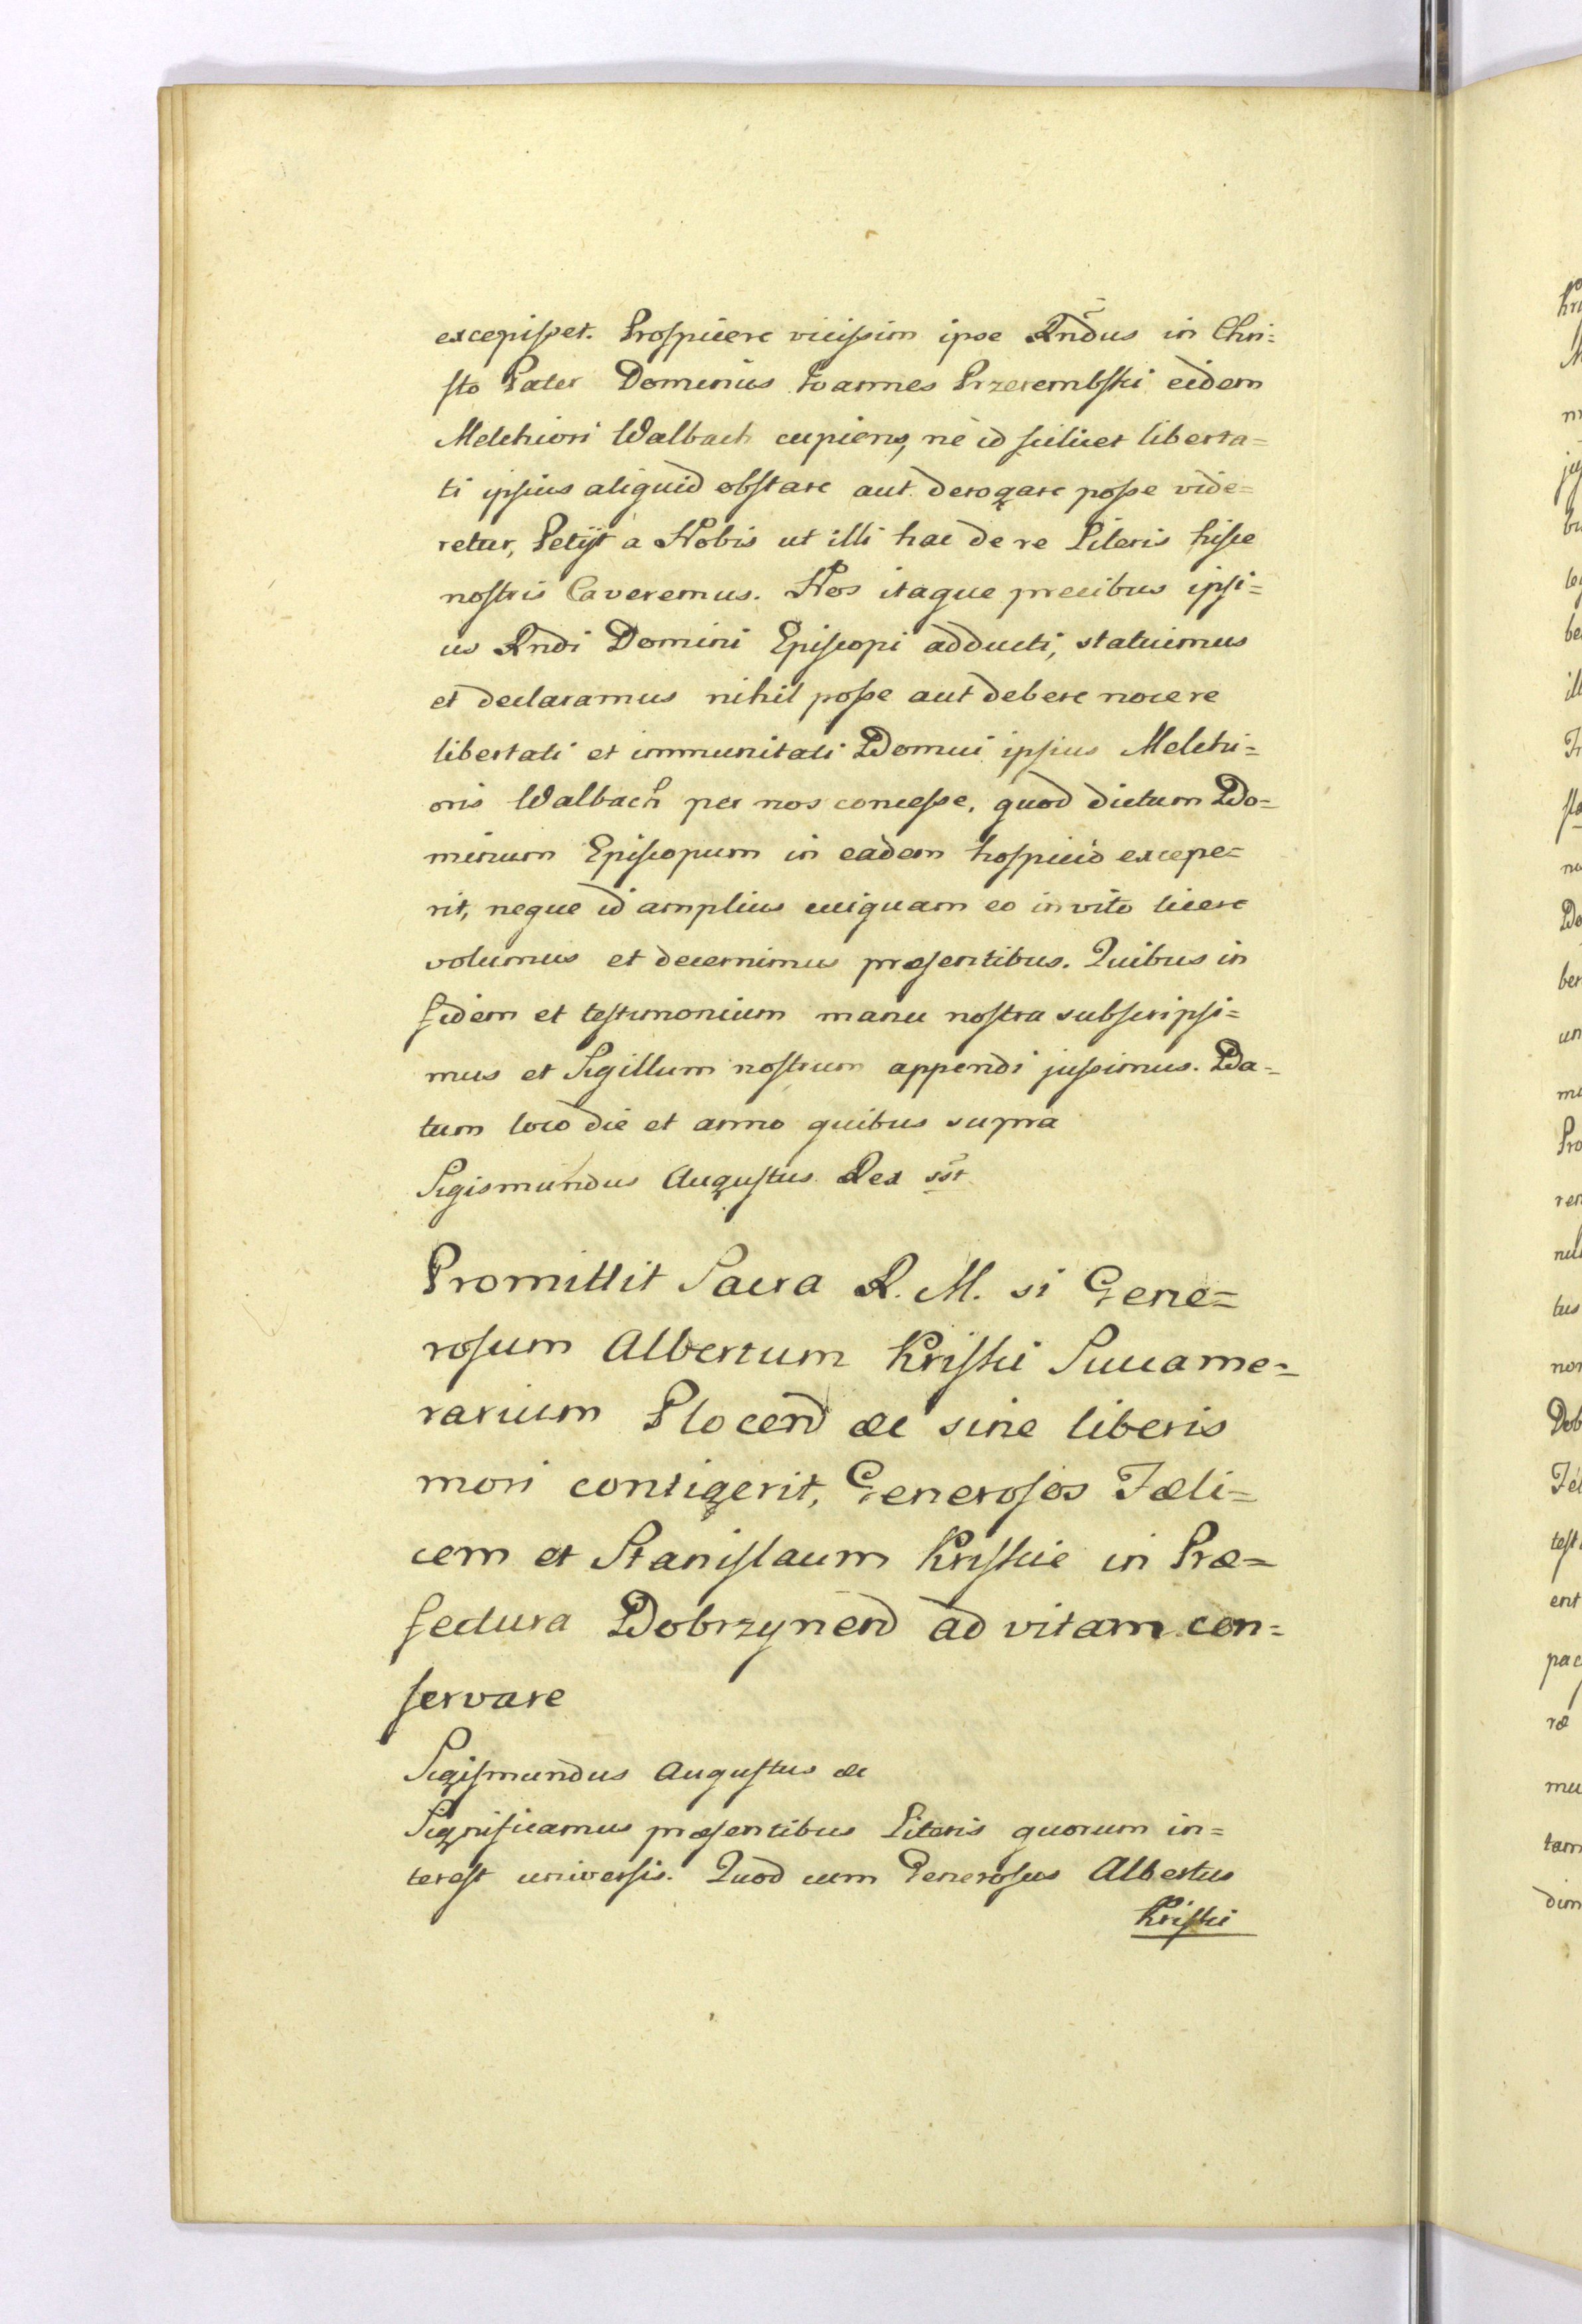 excepisset. Prospicere vicissim ipse Rñdus in Chri=
sto Pater Dominus Ioannes Przerembski eidem
Melchiori Walbach cupiens, ne id scilicet liberta=
ti ipsius aliquid obstare aut derogare posse vide=
retur, Petijt a Nobis ut illi hac de re Literis hisce
nostris Caveremus. Nos itaque precibus ipsi=
us Rndi Domini Episcopi adducti, statuimus
et declaramus nihil posse aut debere nocere
libertati et immunitati Domui ipsius Melchi=
oris Walbach per nos concesse, quod dictum Do=
minum Episcopum in eadem hospicio excepe=
rit, neque id amplius cuiquam eo invito licere
volumus et decernimus præsentibus. Quibus in
fidem et testimonium manu nostra subscripsi=
mus et Sigillum nostrum appendi jussimus. Da=
tum loco die et anno quibus supra
Sigismundus Augustus Rex sst
Promittit Sacra R. M. si Gene=
rosum Albertum Kriski Succame=
rarium Plocend &c sine liberis
mori contigerit, Generosos Fæli=
cem et Stanislaum Kriskie in Præ=
fectura Dobrzynend ad vitam con=
servare
Sigismundus Augustus &c
Significamus præsentibus Literis quorum in=
terest universis. Quod cum Generosus Albertus
Kriski